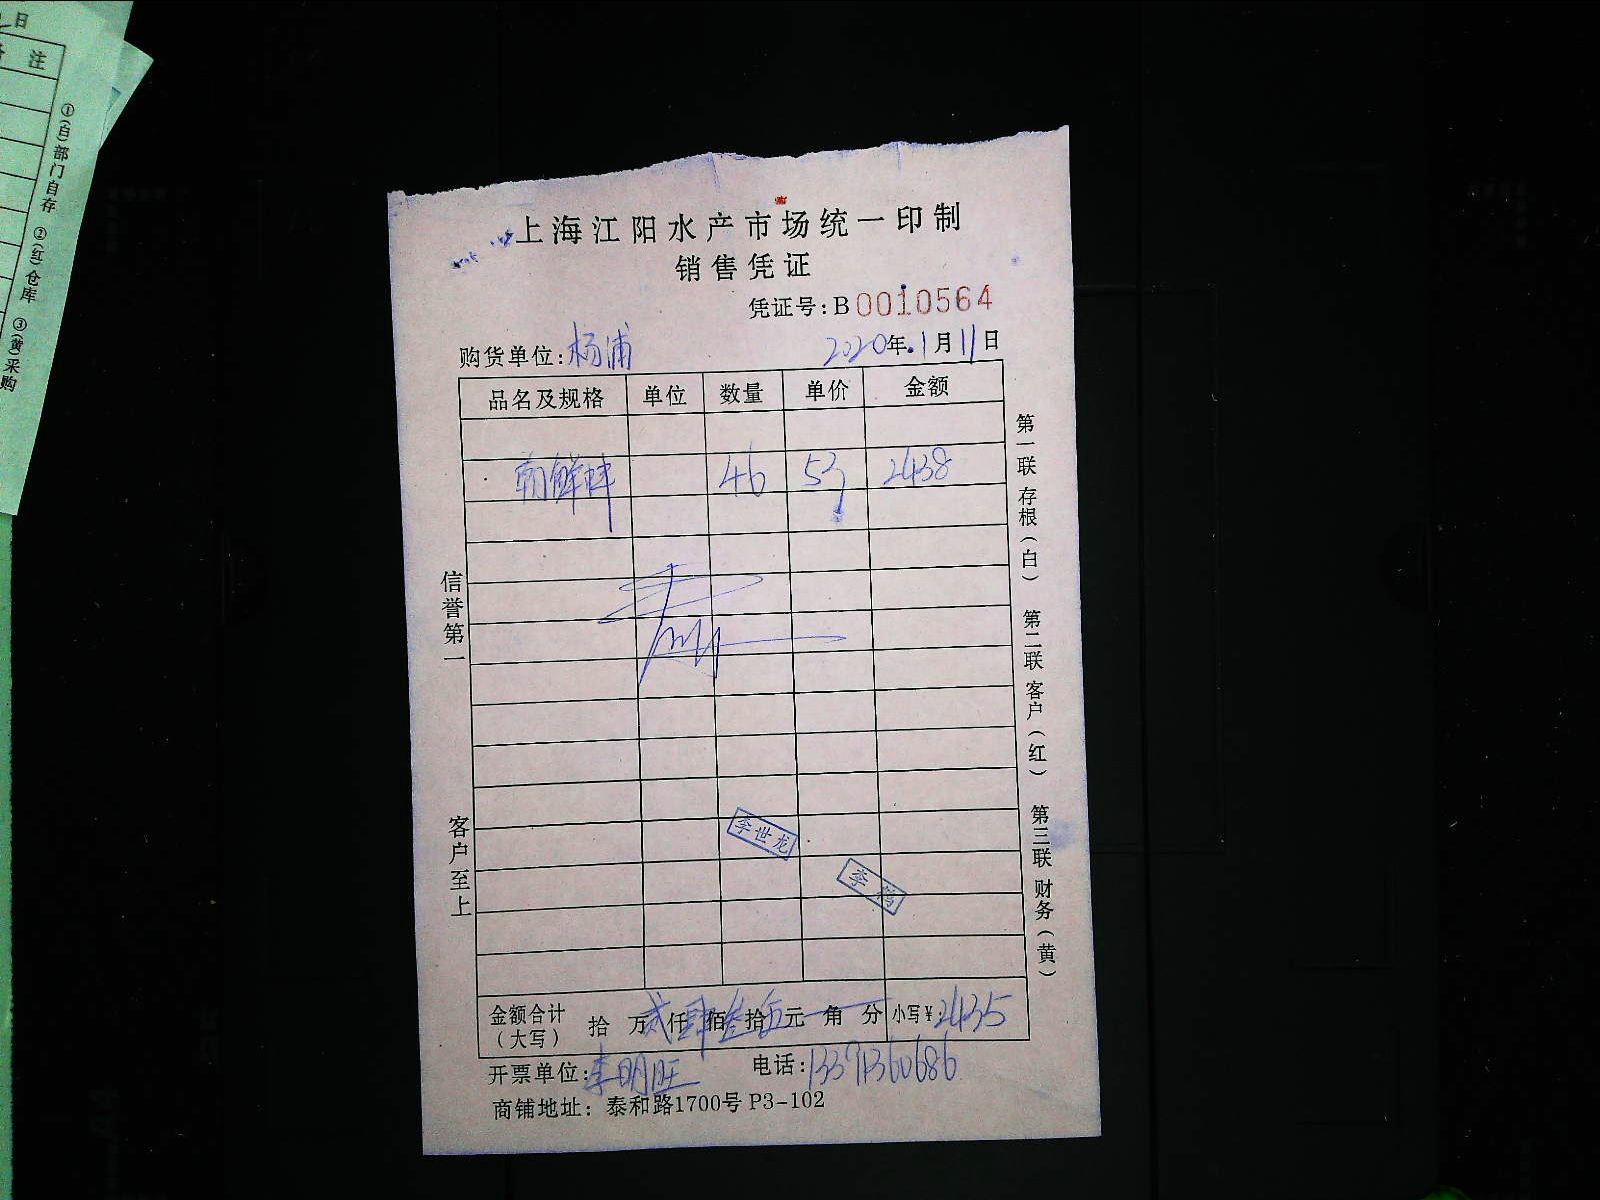 日
注
①(白)部门自存 ②(红)仓库 ③(黄)采购
上海江阳水产市场统一印制
销售凭证
凭证号:B0010564
购货单位:杨浦 2020年1月11日
品名及规格 单位 数量 单价 金额
朝鲜蚌 46 53 2438
信誉第一
客户至上
第一联存根(白) 第二联客户(红) 第三联财务(黄)
李世龙
李
金额合计(大写) 拾 万贰仟肆佰叁拾伍元 角 分 小写¥:2435
开票单位:李明旺 电话:13391360686
商铺地址: 泰和路1700号 P3-102